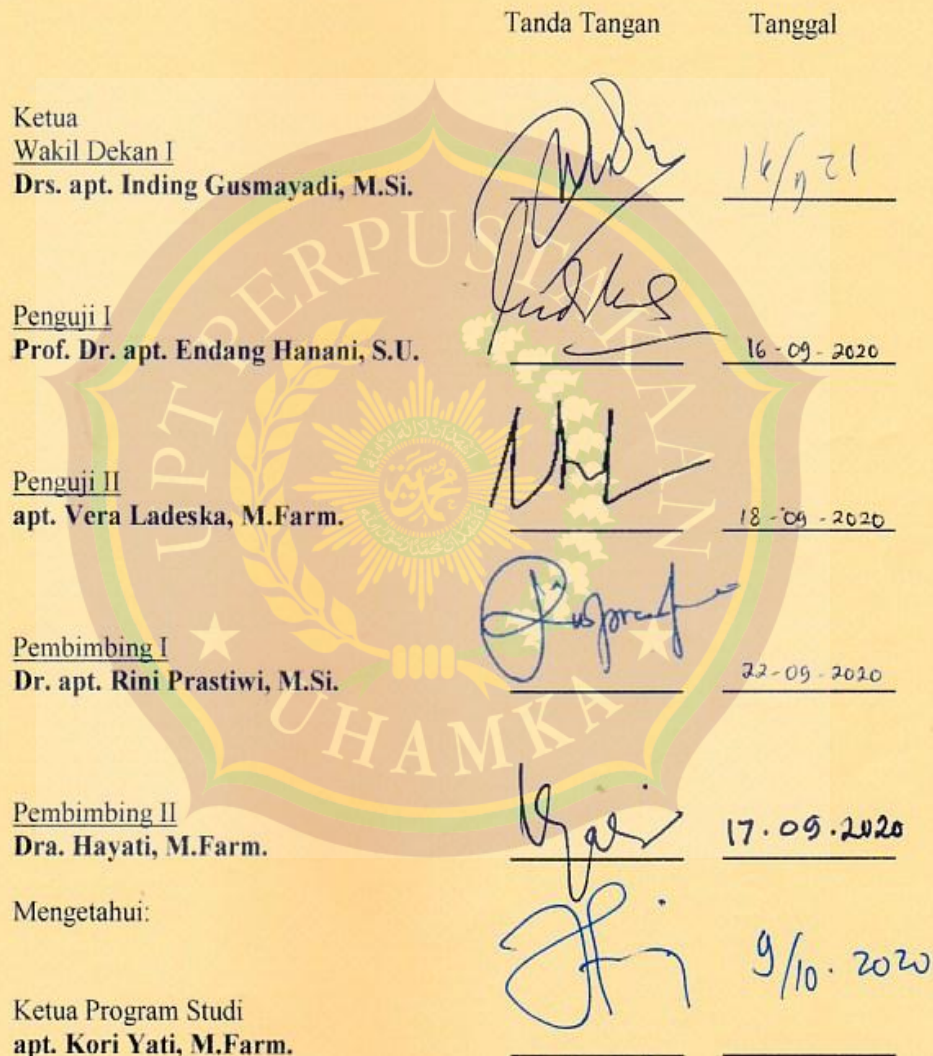 Tanda Tangan Tanggal
Ketua
Wakil Dekan I
Drs. apt. Inding Gusmayadi, M.Si.
Penguji I
Prof. Dr. apt. Endang Hanani, S.U. 16-09-2020
Penguji II
apt. Vera Ladeska, M.Farm. 18-09-2020
Pembimbing I
Dr. apt. Rini Prastiwi, M.Si. 22-09-2020
Pembimbing II
Dra. Hayati, M.Farm. 17.09.2020
Mengetahui:
9/10. 2020
Ketua Program Studi
apt. Kori Yati, M.Farm.
UPT PERPUSTAKAAN
UHAMKA